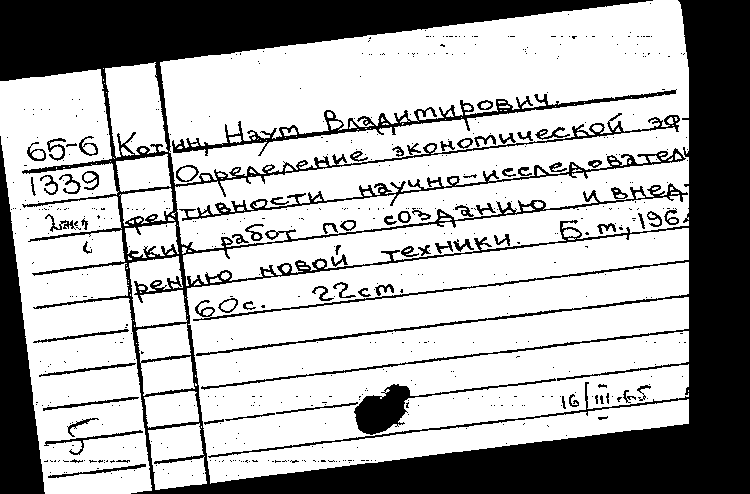 65-6 Котин, Наум Владимирович.
1339 Определение экономической эф-
2 экз фективности научно-исследователь
ских работ по созданию и внед-
рению новой техники. Б. м., 196
60с. 22см.
16/III-65
5